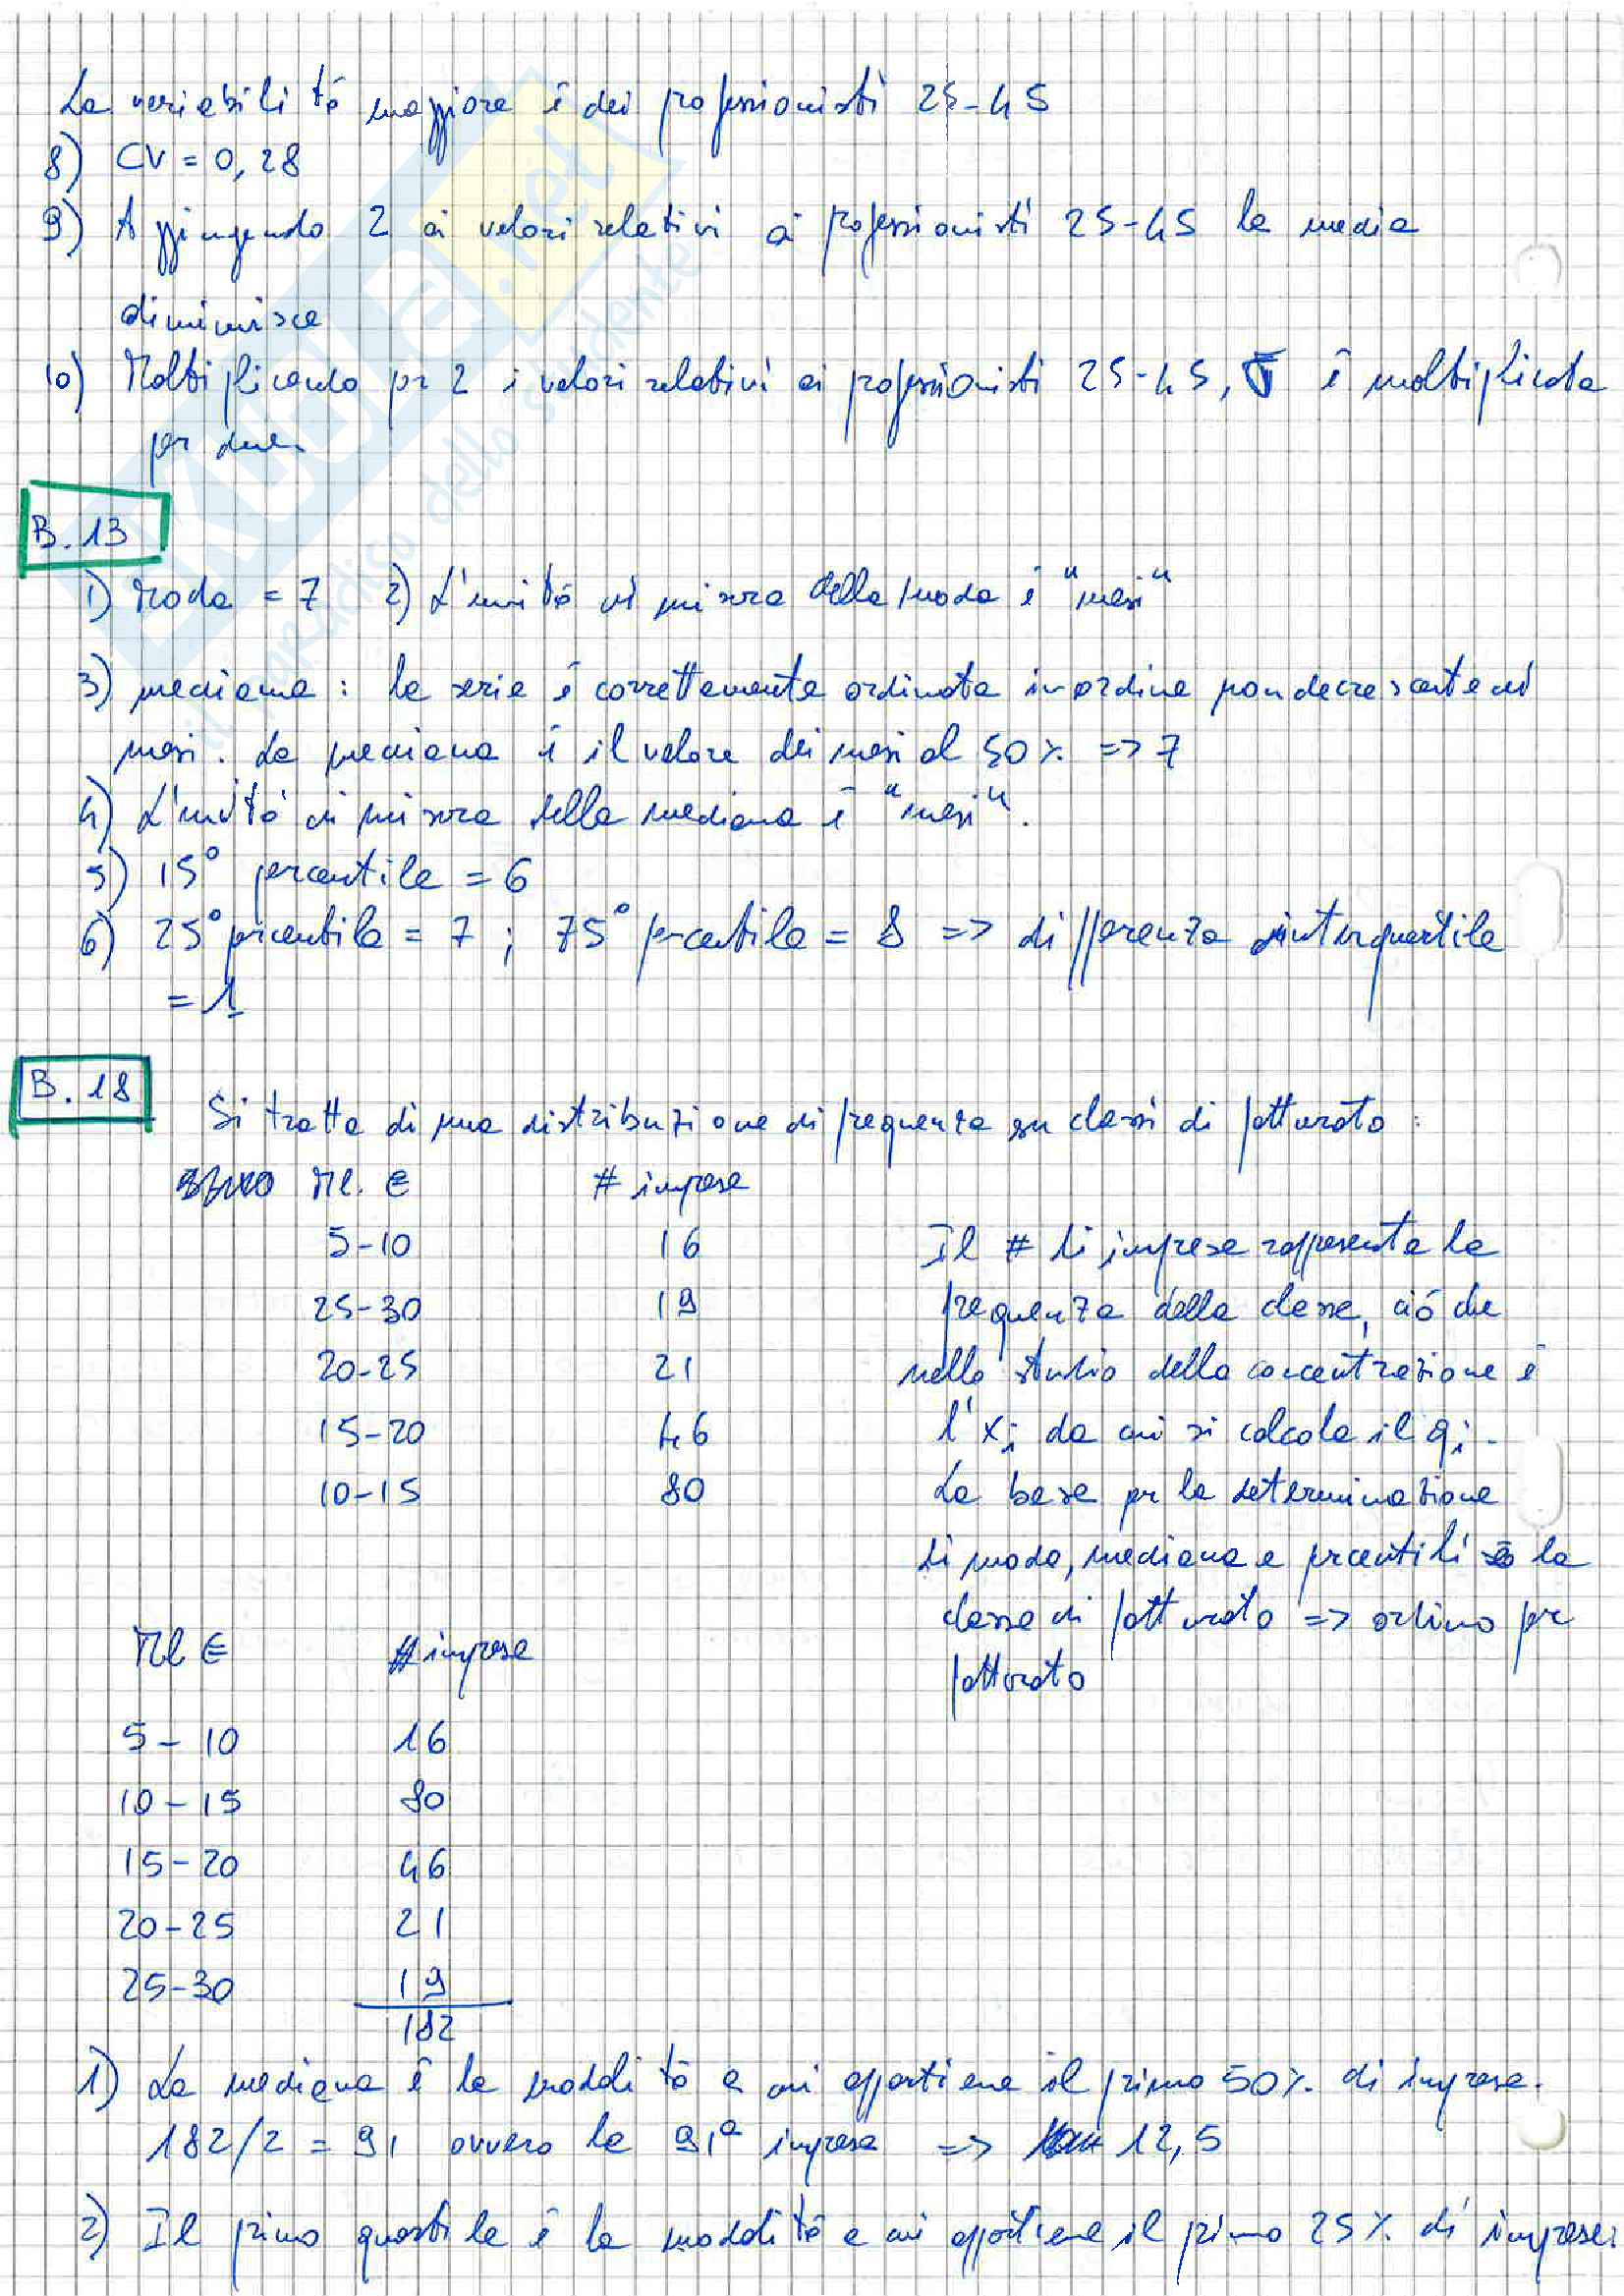 La variabilità maggiore è dei professionisti 25-45
8) CV = 0,28
9) Aggiungendo 2 ai valori relativi ai professionisti 25-45 la media
diminuisce
10) Moltiplicando per 2 i valori relativi ai professionisti 25-45, σ è moltiplicata
per due.
B. 13
1) Moda = 7 2) L'unità di misura della moda è "mesi"
3) mediana : la serie è correttamente ordinata in ordine non decrescente di
mesi. La mediana è il valore dei mesi al 50% => 7
4) L'unità di misura della mediana è "mesi".
5) 15° percentile = 6
6) 25° percentile = 7 ; 75° percentile = 8 => differenza interquartile
= 1
B. 18
Si tratta di una distribuzione di frequenza su classi di fatturato :
Ml. € # imprese
5-10 16
25-30 19
20-25 21
15-20 46
10-15 80
Il # di imprese rappresenta la
frequenza della classe, ciò che
nello studio della concentrazione è
l'xi da cui si calcola il qi.
La base per la determinazione
di moda, mediana e percentili è la
classe di fatturato => ordino per
fatturato
Ml € # imprese
5-10 16
10-15 80
15-20 46
20-25 21
25-30 19
182
1) La mediana è la modalità a cui appartiene il primo 50% di imprese.
182/2 = 91 ovvero la 91ª impresa => 12,5
2) Il primo quartile è la modalità a cui appartiene il primo 25% di imprese:
.net
il paradiso dello studente